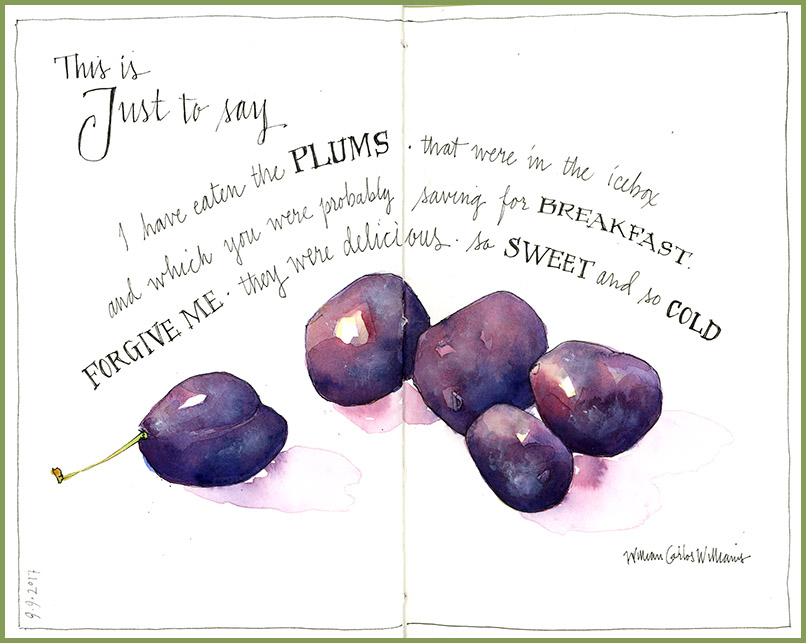 This is
Just to say
I have eaten the PLUMS · that were in the icebox
and which you were probably saving for BREAKFAST.
FORGIVE ME · they were delicious · so SWEET and so COLD
William Carlos Williams
9.9.2017